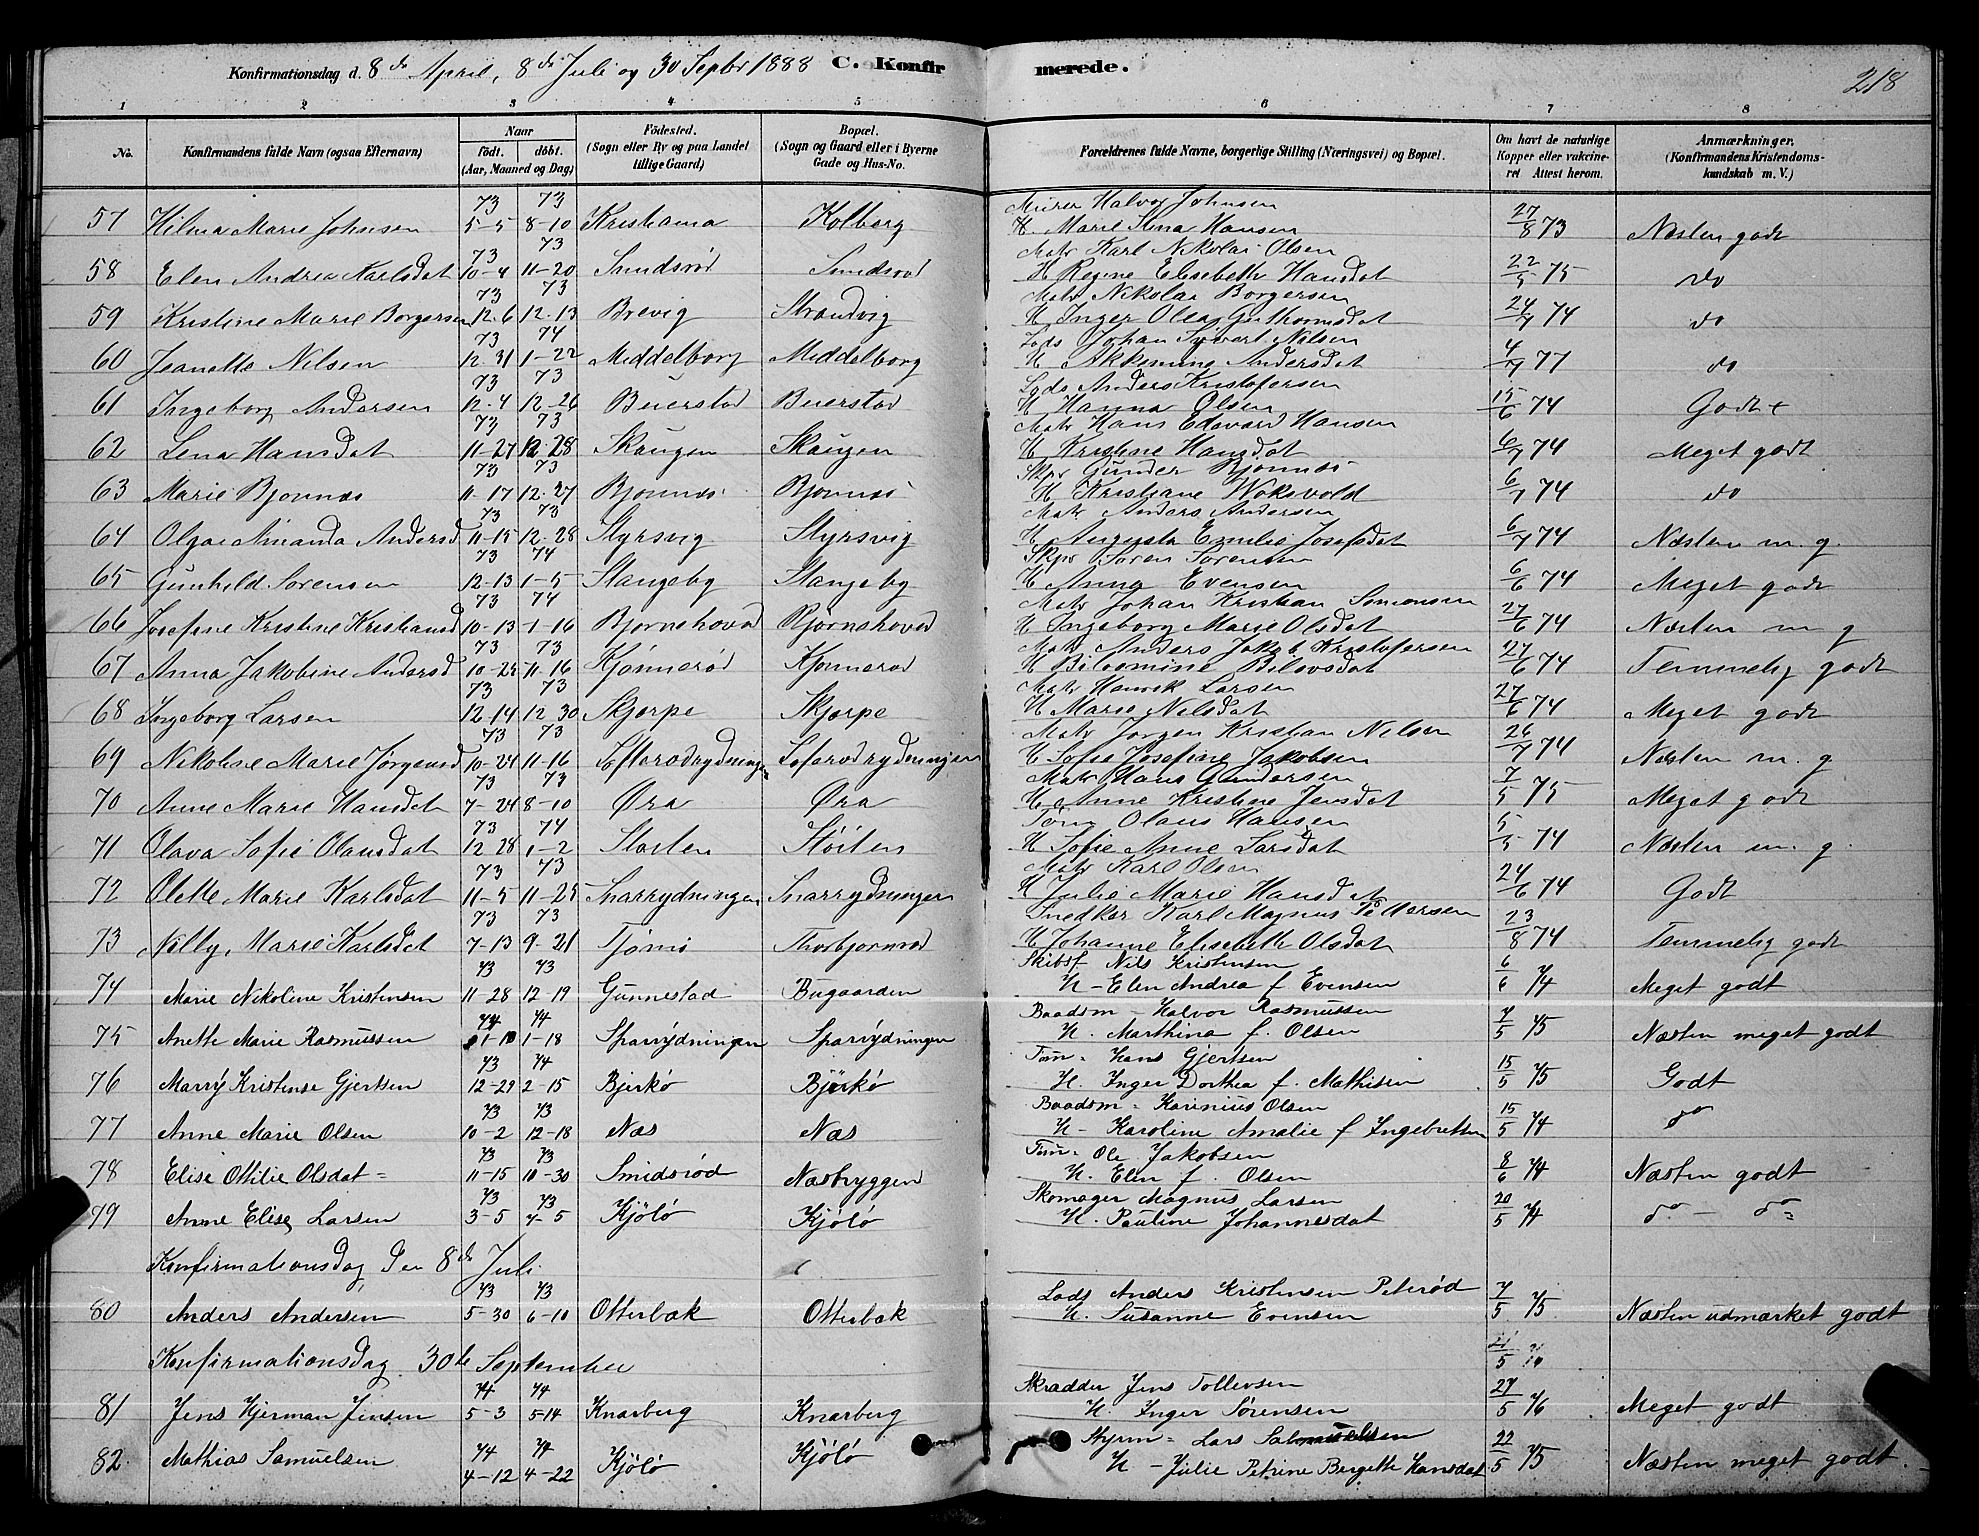 Konfirmationsdag d. 8de April, 8de Juli og 30 Septbr 1888 C. Konfirmerede. 218
1 2 3 4 5 6 7 8
No. Konfirmandens fulde Navn (ogsaa Efternavn) Naar födt. döbt. (Aar, Maaned og Dag) Födested. (Sogn eller By og paa Landet tillige Gaard) Bopæl. (Sogn og Gaard eller i Byerne Gade og Hus-No. Forældrenes fulde Navne, borgerlige Stilling (Næringsvei) og Bopæl. Om havt de naturlige Kopper eller vakcineret Attest herom. Anmærkninger. (Konfirmandens Kristendomskundskab m. V.)
73 73 Murer Halvor Johnsen
57 Hilma Marie Johnsen 5-5 8-10 Kristiania Kolberg H Marie Stina Hansen 27/8 73 Næsten godt
73 73 Matr Karl Nikolai Olsen
58 Elen Andrea Karlsdat 10-4 11-20 Smidsrød Smidsrød H Regine Elisebeth Hansdat 22/5 75 do
73 73 Matr Nikolai Borgersen
59 Kristine Marie Borgersen 12-6 12-13 Brevig Strandvig H Inger Olea Guthormsdat 24/7 74 do
73 74 Lods Johan Sivert Nilsen
60 Jeanette Nilsen 12-31 1-22 Middelborg Middelborg H Andersdat 4/7 77 do
73 73 Lods Anders Kristofersen
61 Ingeborg Andersen 12-4 12-26 Beierstad Beierstad H Hanna Olsen 15/6 74 Godt +
73 73 Matr Hans Edvard Hansen
62 Lena Hansdat 11-27 12-28 Skaugen Skaugen H Kristine Hansdat 6/7 74 Meget godt
73 73 Skpr Gunder Bjonnes
63 Marie Bjonnes 11-17 12-27 Bjonnes Bjonnes H Kristiane Woksvold 6/7 74 do
73 73 Matr Anders Andersen
64 Olga Amanda Andersd 11-15 12-28 Styrsvig Styrsvig H Augusta Emilie Josefsdat 6/7 74 Næsten m. g.
73 74 Skpr Soren Sorensen
65 Gunhild Sorensen 12-13 1-5 Stangeby Stangeby H Anna Evensen 6/6 74 Meget godt
73 74 Matr Johan Kristian Simonsen
66 Josefine Kristine Kristiansd 10-13 1-16 Bjornehoved Bjornehoved H Ingeborg Marie Olsdat 27/6 74 Næsten m g
73 73 Matr Anders Jakob Kristofersen
67 Anna Jakobine Andersd 10-25 11-16 Kjønnerød Kjonnerod H 27/6 74 Temmelig godt
73 73 Matr Henrik Larsen
68 Ingeborg Larsen 12-14 12-30 Skjerpe Skjerpe H Marie Nilsdat 27/6 74 Meget godt
73 73 Matr Jorgen Kristian Nilsen
69 Nikoline Marie Jørgensd 10-24 11-16 H Sofie Josefine Jakobsen 26/7 74 Næsten m. g
73 73 Matr Hans Gundersen
70 Anne Marie Hansdat 7-24 8-10 Øra Øra H Anne Kristine Jensdat 7/5 75 Meget godt
73 74 Tøm Olaus Hansen
71 Olava Sofie Olausdat 12-28 1-2 Støiten Støiten H Sofie Anne Larsdat 5/5 74 Næsten m. g.
73 73 Matr Karl Olsen
72 Olette Marie Karlsdat 11-5 11-25 Snarrydningen Snarrydningen H Julie Marie Hansdat 24/6 74 Godt
73 73 Snedker Karl Magnus Pettersen
73 Nilly, Marie Karlsdat 7-13 9-21 Tjømø Thorbjornrod H Johanne Elisebeth Olsdat 23/8 74 Temmelig godt
73 73 Skibsf Nils Kristensen
74 Marie Nikoline Kristensen 11-28 12-19 Gunnestad Bugaarden H - Elen Andrea f Evensen 6/6 74 Meget godt
74 74 Baadsm - Halvor Rasmussen
75 Anette Marie Rasmussen 1-18 Sparrydningen Sparrydningen H. Marthina f. Olsen 7/5 75 Næsten meget godt
73 74 Tøm = Hans Gjertsen
76 Marry Kristense Gjertsen 12-29 2-15 Bjerkø Bjerkø H. Inger Dorthea f. Mathisen 15/5 75 Godt
73 73 Baadsm = Karinius Olsen
77 Anne Marie Olsen 10-2 12-18 Næs Næs H - Karoline Amalie f Ingebretsen 15/5 74 do
73 73 Tøm = Ole Jakobsen
78 Elise Ottilie Olsdat = 11-15 10-30 Smidsrød Næsbryggen H. Elen f. Olsen 8/6 74 Næsten godt
73 73 Skomager Magnus Larsen
79 Anne Elise Larsen 3-5 4-5 Kjölø Kjölø H. Pauline Johannesdat 20/5 74 do - do =
Konfirmationsdag den 8de Juli
73 73 Lods Anders Kristensen Peterød
80 Anders Andersen 5-30 6-10 Otterbæk Otterbæk H. Susanne Evensen 7/5 75 Næsten udmærket godt
Konfirmationsdag 30te September
74 74 Skrædder Jens Tollevsen
81 Jens Hjerman Jensen 5-3 5-14 Knarberg Knarberg H - Inger Sørensen 27/5 76 Meget godt
74 74 Styrm = Lars Samuelsen
82. Mathias Samuelsen 4-12 4-22 Kjölø Kjölø H - Julie Petrine Bergette Hansdat 22/5 75 Næsten meget godt.